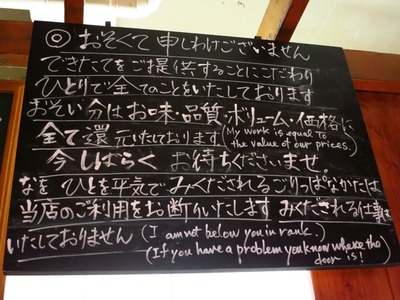 ◎ おそくて申しわけございません
できたてをご提供することにこだわり
ひとりで全てのことをいたしております
おそい分はお味・品質・ボリューム・価格に
全て還元いたしております (My work is equal to the value of our prices.)
今しばらく お待ちくださいませ
なを ひとを平気でみくだされるごりっぱなかたは
当店のご利用をお断りいたします みくだされる仕事は
いたしておりません (I am not below you in rank.)
(If you have a problem you know where the door is!)